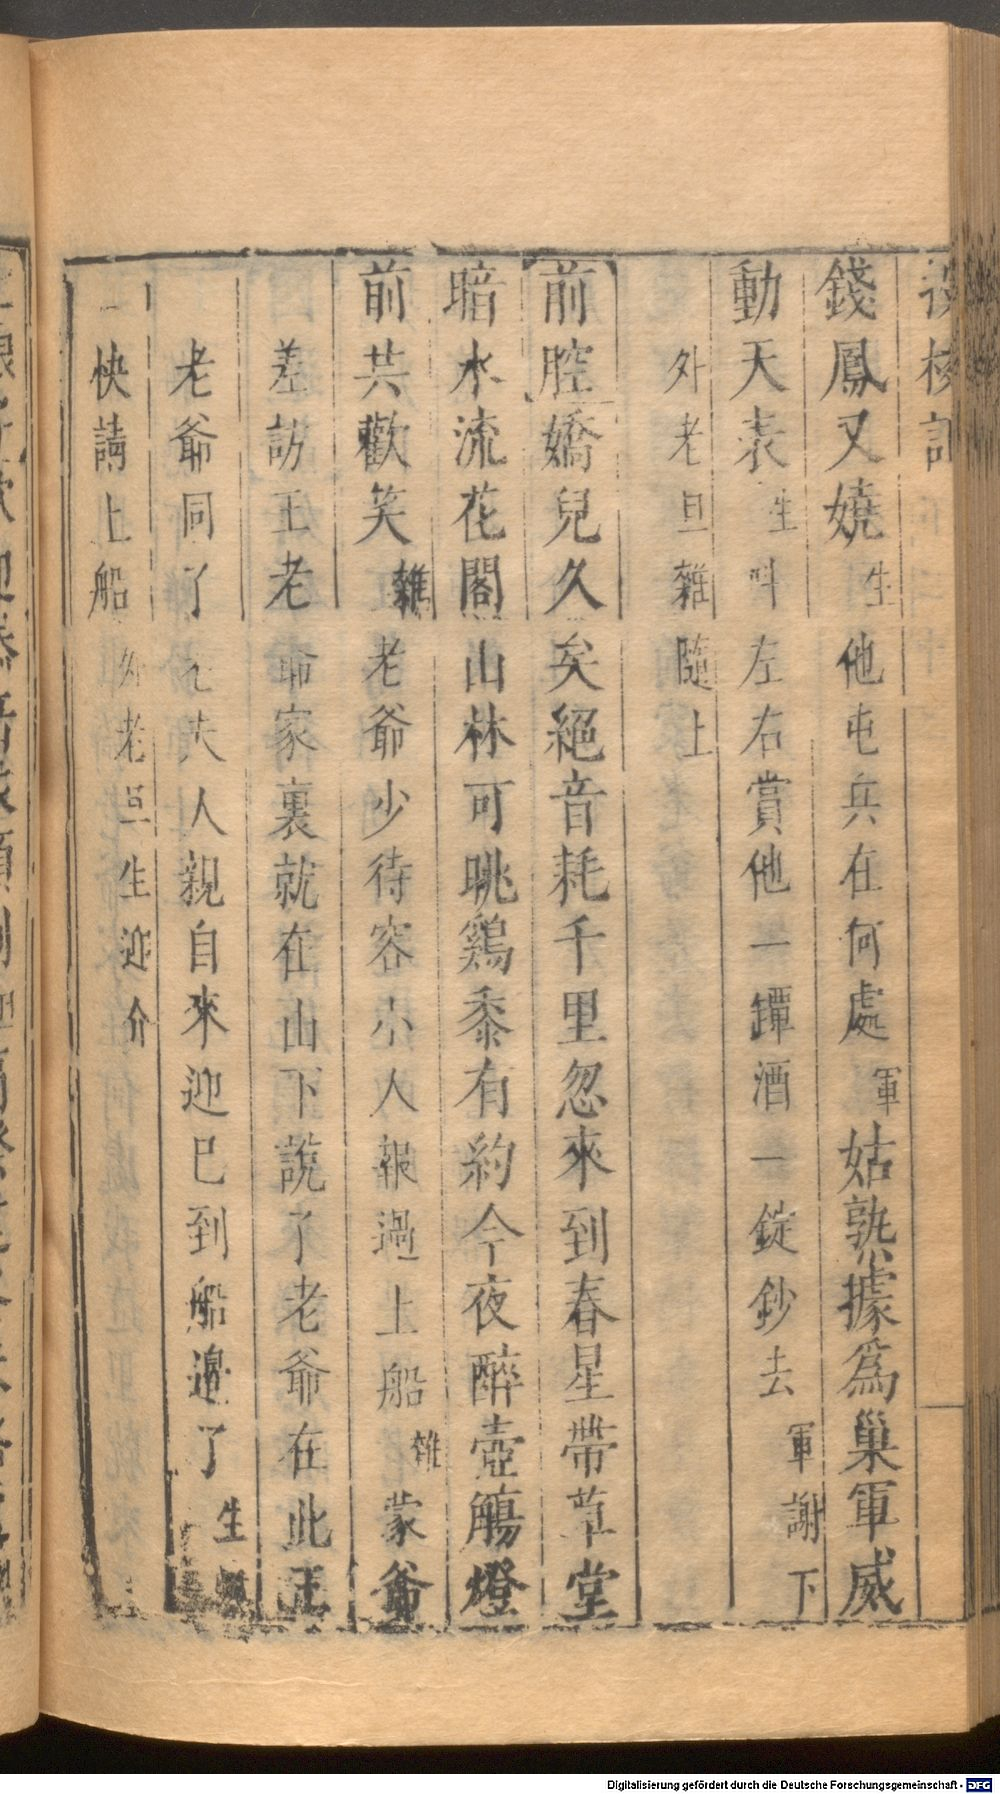 錢鳳又嬈生他屯兵在何處軍姑熟據爲巢軍威
動天表生叫左右賞他一罈酒一錠鈔去軍謝下
外老旦雜隨上
前腔嬌兒久矣絕音耗千里忽來到春星帶草堂
暗水流花閣山林可眺鷄黍有約今夜醉壺觴燈
前共歡笑雜老爺少待容小人報過上船雜蒙爺
差訪王老爺家裏就在山下說了老爺在此王
老爺同了老夫人親自來迎已到船邊了生
快請上船外老旦生迎介
Digitalisierung gefördert durch die Deutsche Forschungsgemeinschaft - DFG